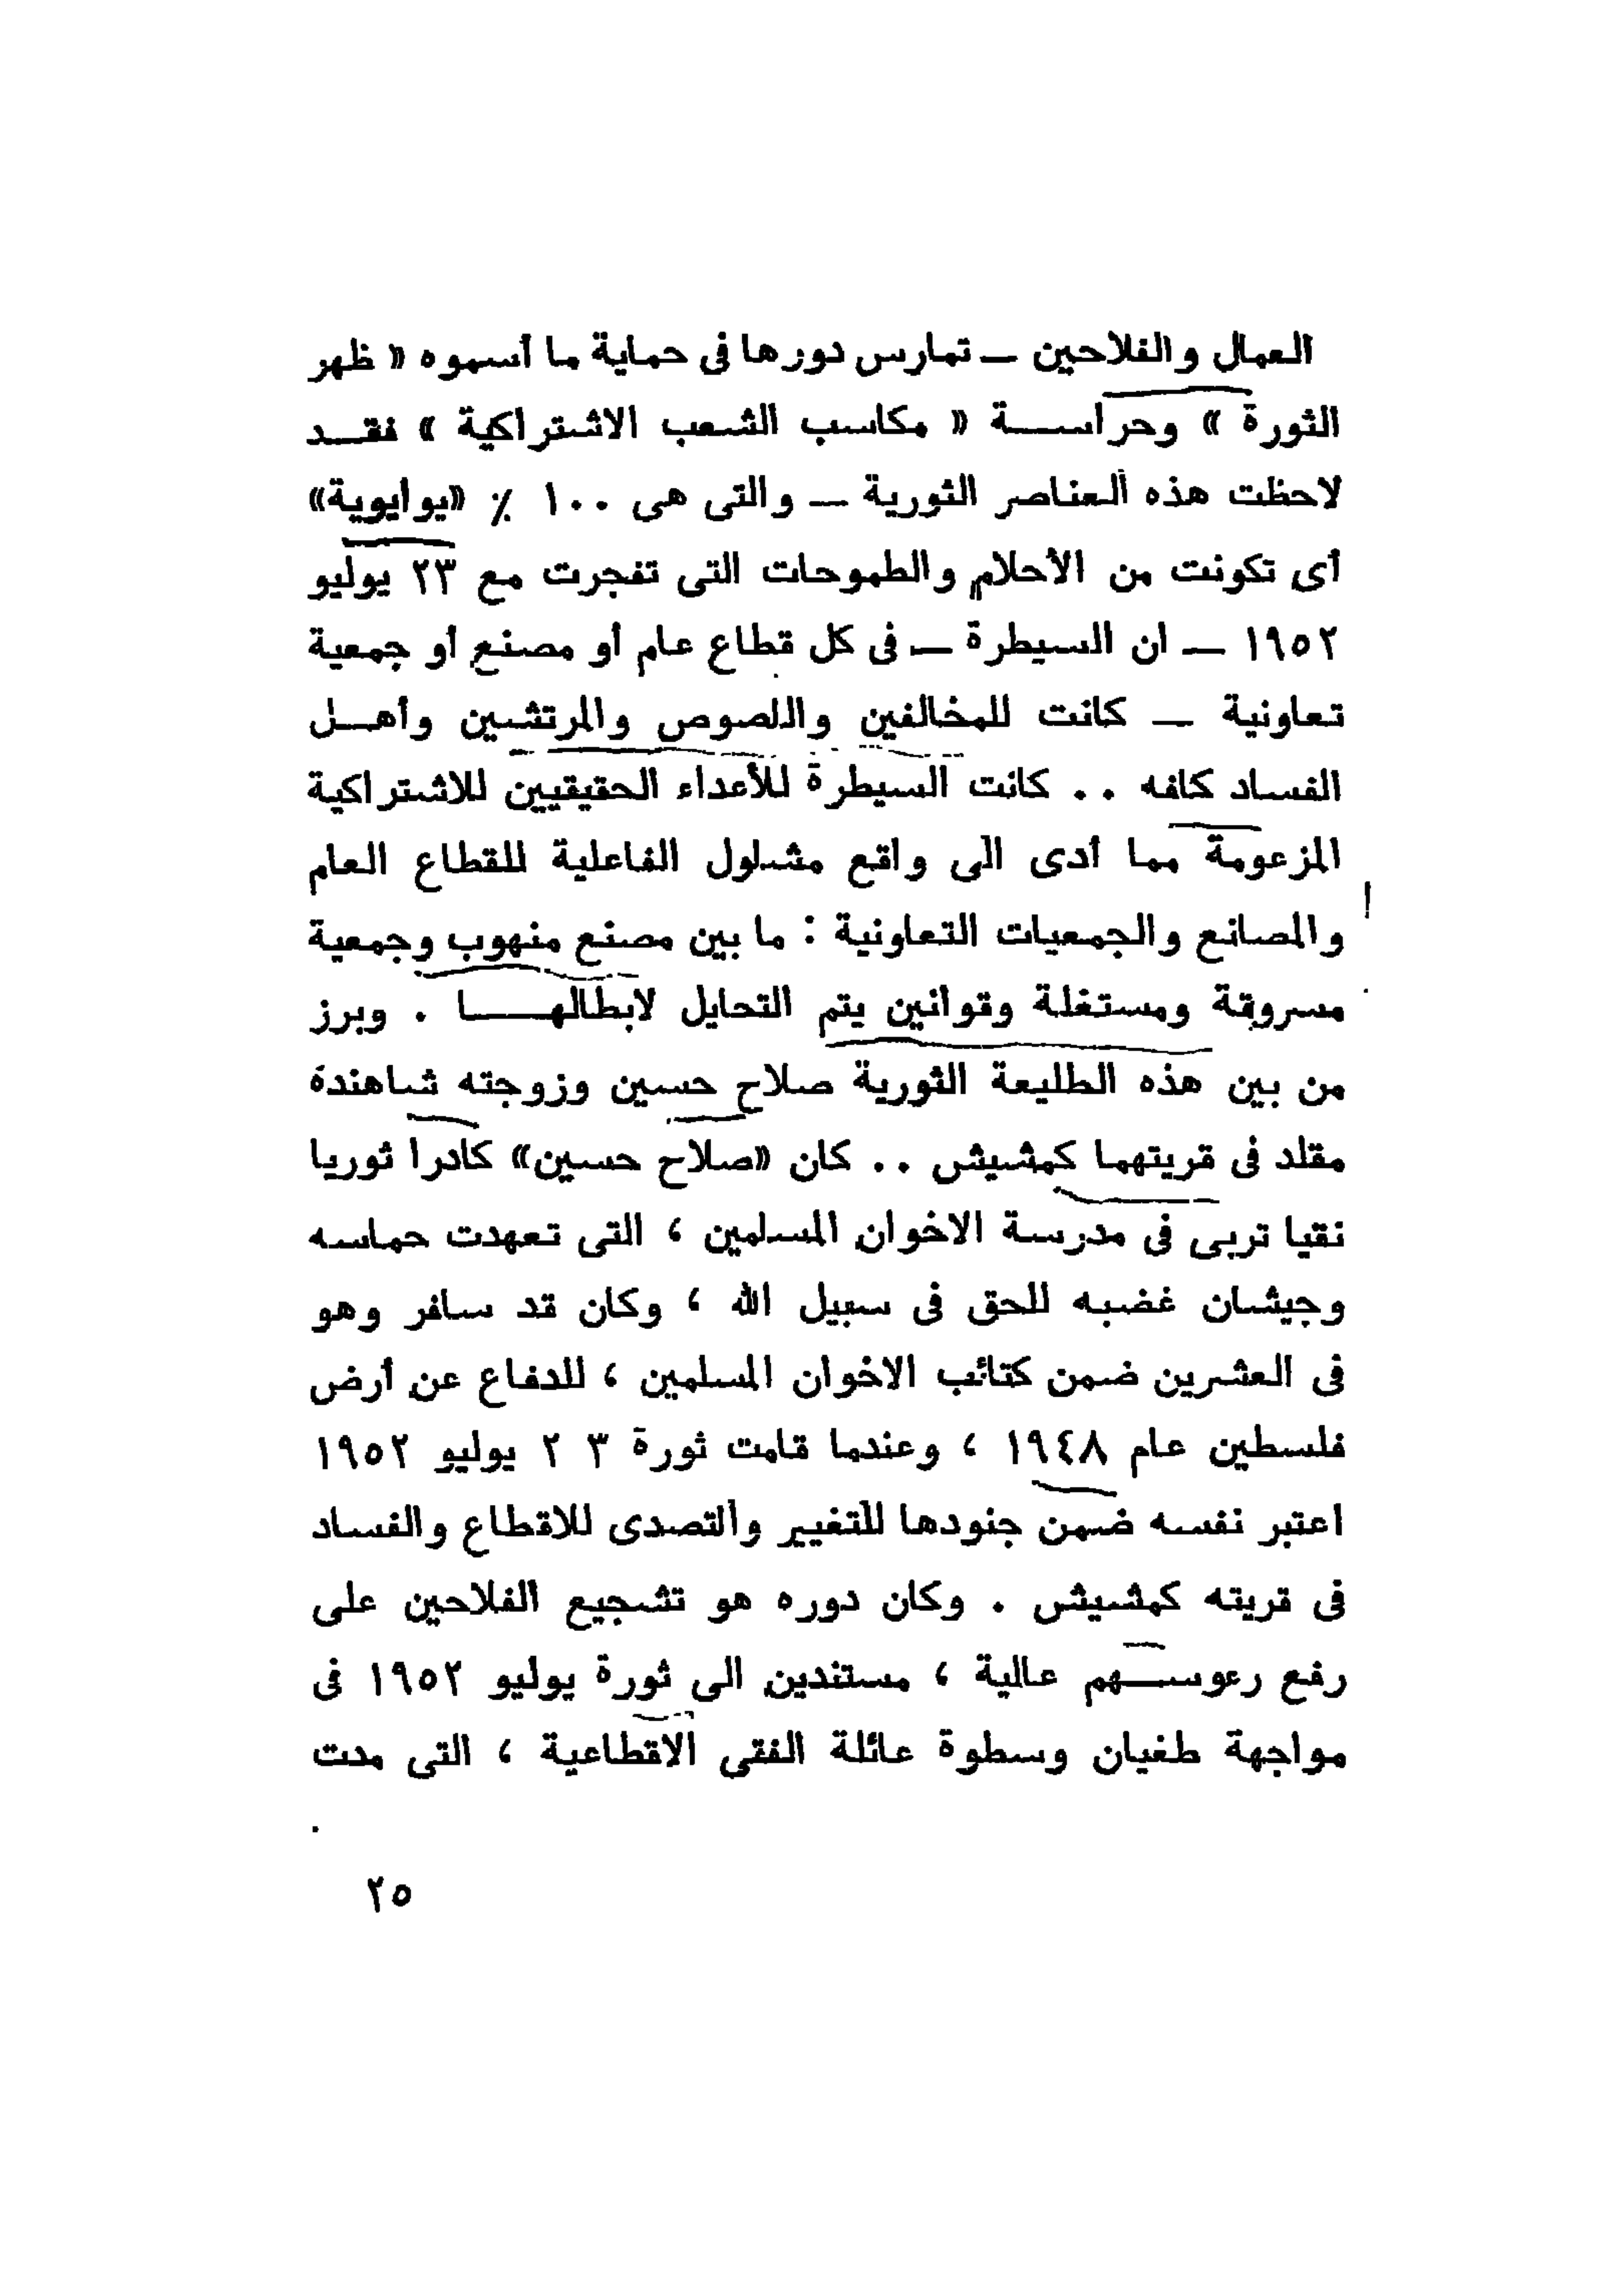 العمال والفلاحين — تمارس دورها فى حماية ما أسموه « ظهر
الثورة » وحراسة « مكاسب الشعب الاشتراكية » فقد
لاحظت هذه العناصر الثورية — والتى هى ١٠٠ ٪ «يوايوية»
أى تكونت من الأحلام والطموحات التى تفجرت مع ٢٣ يوليو
١٩٥٢ — ان السيطرة — فى كل قطاع عام أو مصنع أو جمعية
تعاونية — كانت للمخالفين واللصوص والمرتشين وأهل
الفساد كافه . . كانت السيطرة للأعداء الحقيقيين للاشتراكية
المزعومة مما أدى الى واقع مشلول الفاعلية للقطاع العام
والمصانع والجمعيات التعاونية : ما بين مصنع منهوب وجمعية
مسروقة ومستغلة وقوانين يتم التحايل لابطالها . وبرز
من بين هذه الطليعة الثورية صلاح حسين وزوجته شاهندة
مقلد فى قريتهما كمشيش . . كان «صلاح حسين» كادرا ثوريا
نقيا تربى فى مدرسة الاخوان المسلمين ، التى تعهدت حماسه
وجيشان غضبه للحق فى سبيل الله ، وكان قد سافر وهو
فى العشرين ضمن كتائب الاخوان المسلمين ، للدفاع عن أرض
فلسطين عام ١٩٤٨ ، وعندما قامت ثورة ٣ ٢ يوليو ١٩٥٢
اعتبر نفسه ضمن جنودها للتغيير والتصدى للاقطاع والفساد
فى قريته كمشيش . وكان دوره هو تشجيع الفلاحين على
رفع رءوسهم عالية ، مستندين الى ثورة يوليو ١٩٥٢ فى
مواجهة طغيان وسطوة عائلة الفقى الاقطاعية ، التى مدت
٢٥